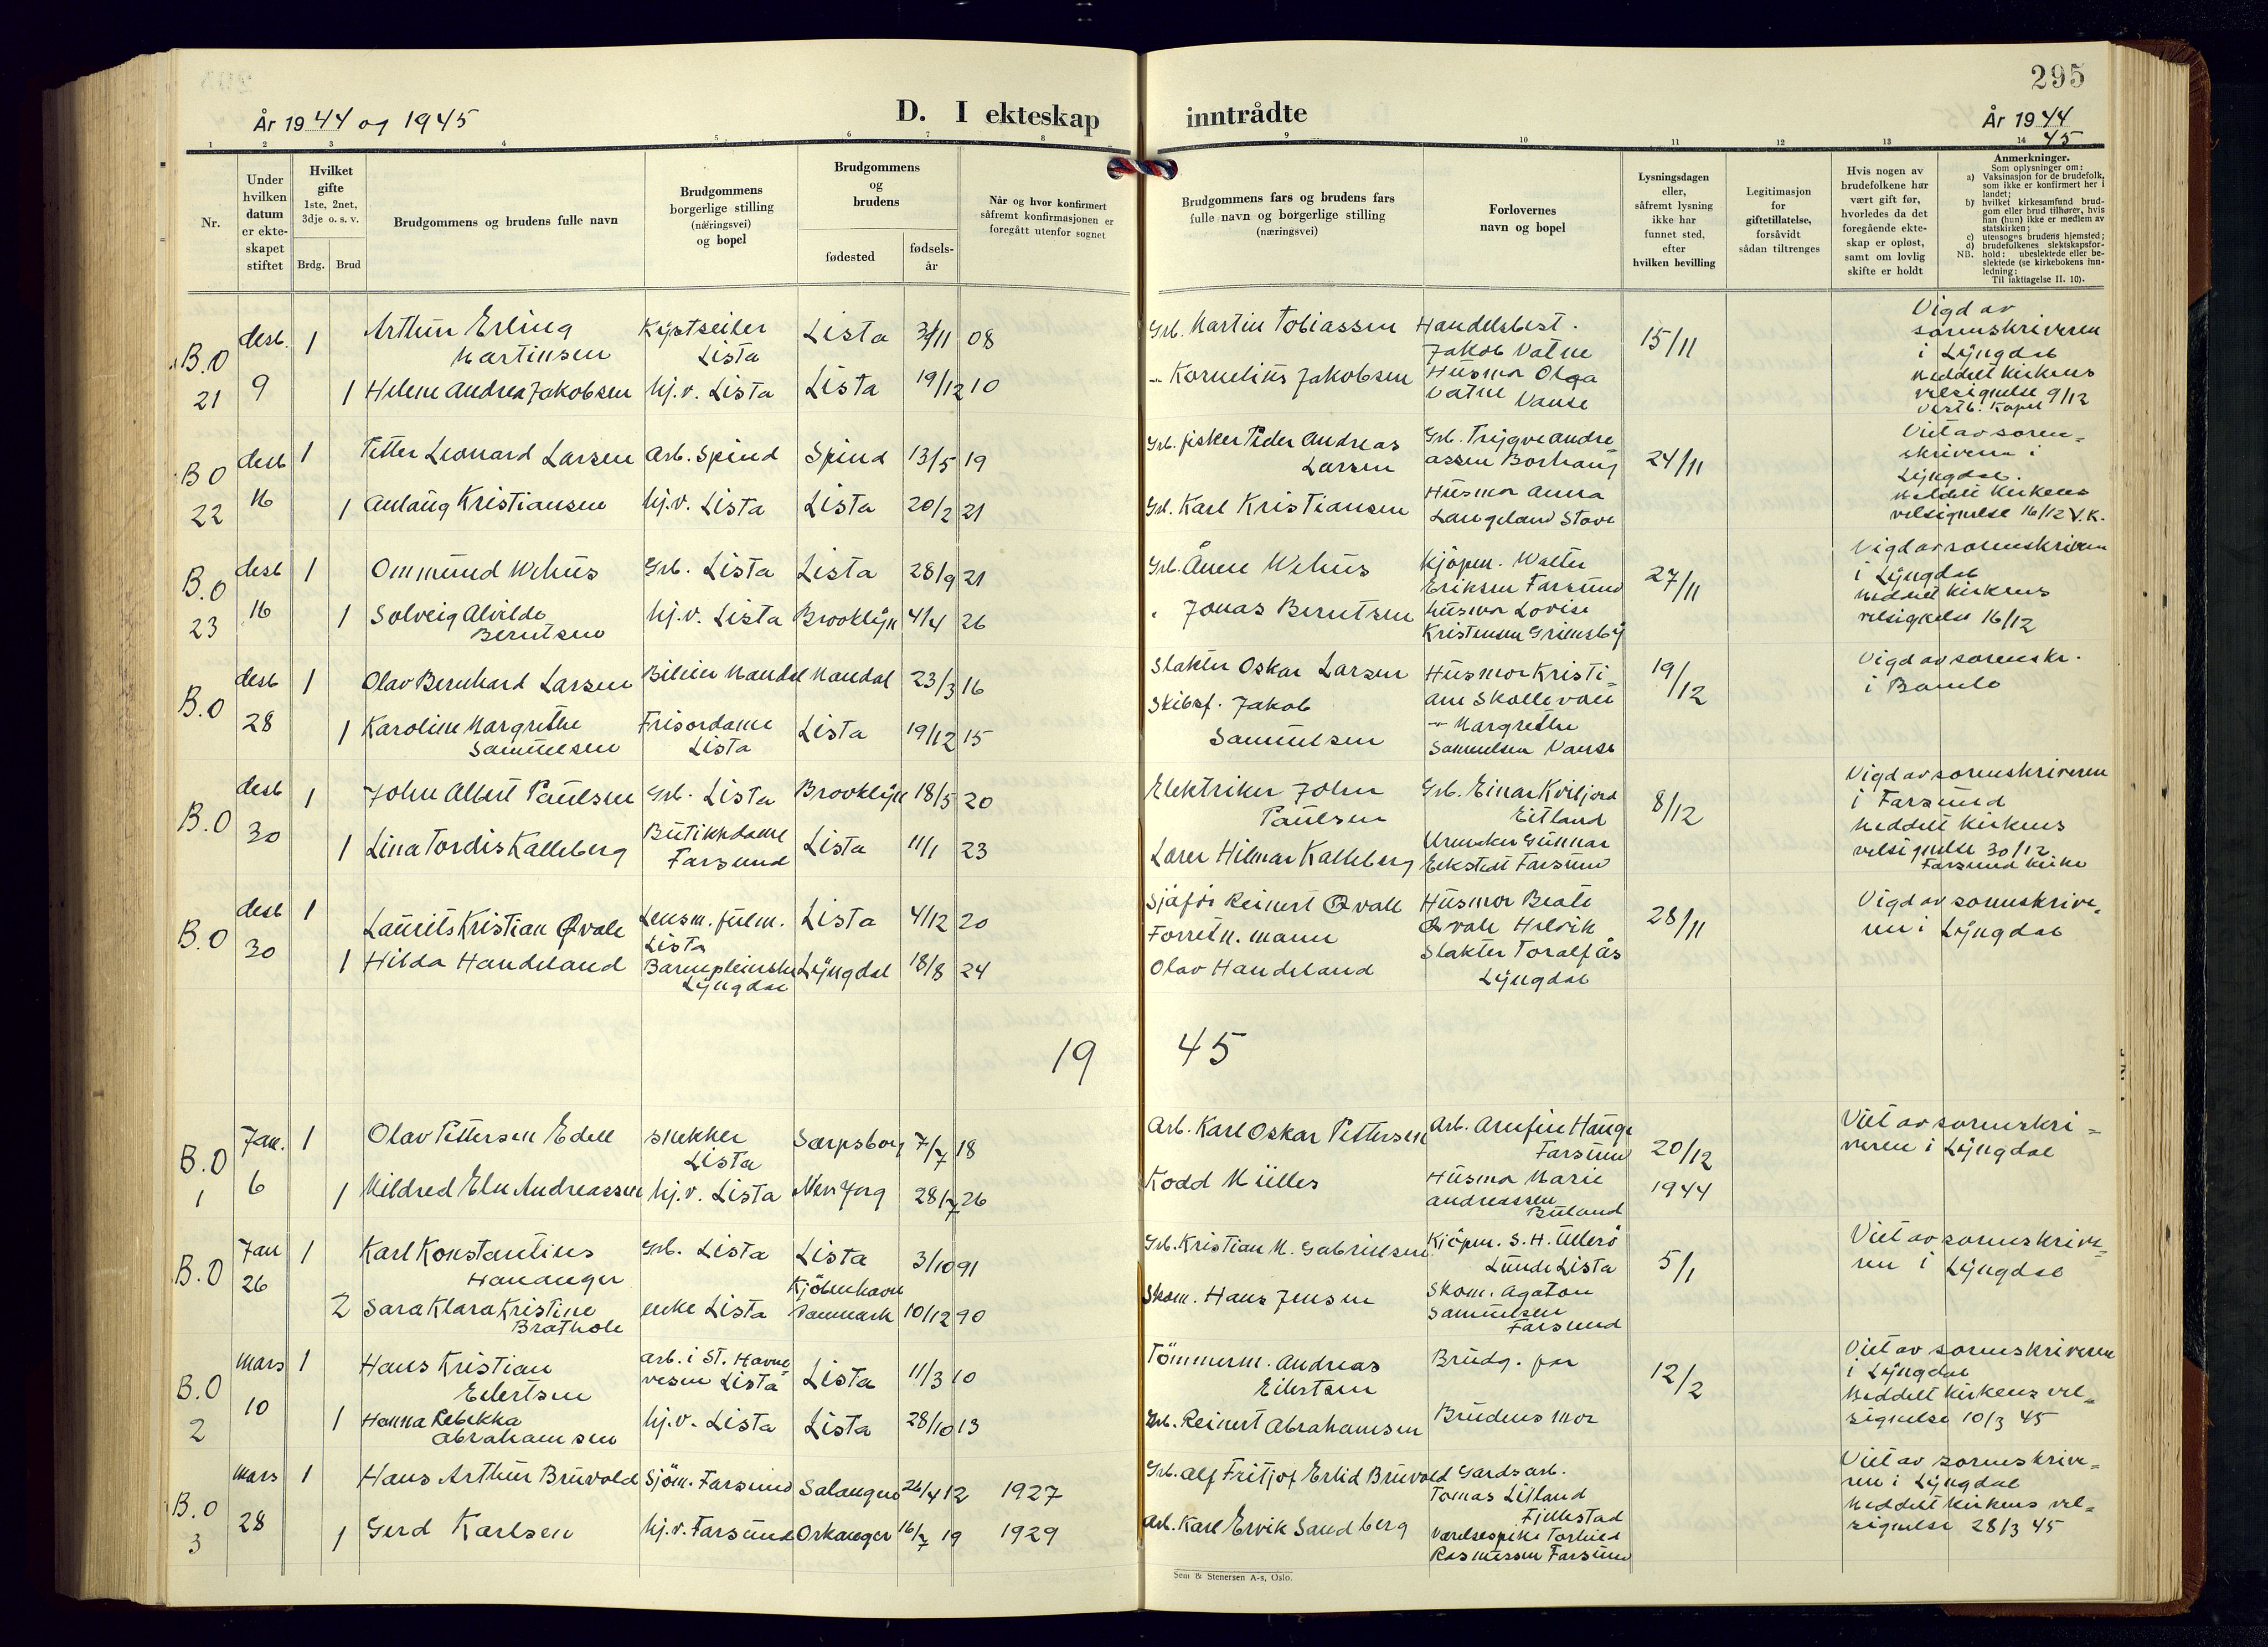 295
År 1944 og 1945
D. I ekteskap inntrådte
År 1944
45
1 2 3 4 5 6 7 8 9 10 11 12 13 14
Nr.
Under hvilken datum er ekte-skapet stiftet
Hvilket gifte 1ste, 2net, 3dje o. s. v.
Brdg. Brud
Brudgommens og brudens fulle navn
Brudgommens borgerlige stilling (næringsvei) og bopel
Brudgommens og brudens
fødested
fødsels-år
Når og hvor konfirmert såfremt konfirmasjonen er foregått utenfor sognet
Brudgommens fars og brudens fars fulle navn og borgerlige stilling (næringsvei)
Forlovernes navn og bopel
Lysningsdagen eller, såfremt lysning ikke har funnet sted, efter hvilken bevilling
Legitimasjon for giftetillatelse, forsåvidt sådan tiltrenges
Hvis nogen av brudefolkene har vært gift før, hvorledes da det foregående ekte-skap er opløst, samt om lovlig skifte er holdt
Anmerkninger.
Som oplysninger om:
a) Vaksinasjon for de brudefolk, som ikke er konfirmert her i landet;
b) hvilket kirkesamfund brud-gom eller brud tilhører, hvis han (hun) ikke er medlem av statskirken;
c) utensogns brudens hjemsted;
d) brudefolkenes slektskapsfor-hold: ubeslektede eller be-slektede (se kirkebokens inn-ledning:
NB. Til iakttagelse II. 10).
B.O 21 desb. 9 1 Arthur Erling Martinsen Lista Lista 08 Grb. Martin Tobiassen Handelsbest. Jakob Vatne 15/11 Vigd av sorenskriveren i Lyngdal
1 Helene Andrea Jakobsen hj.v. Lista Lista 19/12 10 " Kornelius Jakobsen Husmor Olga Vatne Vanse meddelt kirkens velsignelse 9/12 Vestb. Kapel
B O 22 desb 16 1 Petter Leonard Larsen Arb. Spind Spind 13/5 19 Grb. fisker Peder Andreas Larsen Grb. Trygve Andre-assen Borhaug 24/11 Viet av soren-skriveren i Lyngdal.
1 Anlaug Kristiansen hj.v. Lista Lista 20/2 21 Grb. Karl Kristiansen Husmor Anna Langeland Stave meddelt kirkens velsignelse 16/12 V.K.
B.O 23 desb 16 1 Ommund Wehus Grb. Lista Lista 28/9 21 Grb. Ånen Wehus Kjöpm. Walter Eriksen Farsund 27/11 Vigd av sorenskriveren i Lyngdal
1 Solveig Alvilde Berntsen hj.v. Lista Brooklyn 4/4 26 " Jonas Berntsen Husmor Lovise Kristensen Grimsby meddelt kirkens velsignelse 16/12
B.O desb 28 1 Olav Bernhard Larsen Bileier Mandal Mandal 23/3 16 Slakter Oskar Larsen Husmor Kristi-ane Skollevoll 19/12 Vigd av sorenskr. i Bamle
1 Karoline Margrethe Samuelsen Frisordame Lista Lista 19/12 15 Skibsf. Jakob Samuelsen " Margrethe Samuelsen Vanse
B.O desb 30 1 John Albert Paulsen Grb. Lista Brooklyn 18/5 20 Elektriker John Paulsen Grb. Einar Kviljord Eitland 8/12 Vigd av sorenskriveren i Farsund
1 Lina Tordis Kalleberg Butikkdame Farsund Lista 11/1 23 Lærer Hilmar Kalleberg Urmaker Gunnar Eckstedt Farsund meddelt kirkens velsignelse 30/12 Farsund kirke
B.O desb 30 1 Laurits Kristian Qvale Lensm. fulm. Lista Lista 4/12 20 Sjåfør Reinert Qvale Husmor Beate Qvale Helvik 28/11 Vigd av sorenskrive-ren i Lyngdal
1 Hilda Handeland Barnepleierske Lyngdal Lyngdal 18/8 24 Forretn.mann Olav Handeland Slakter Toralf Ås Lyngdal
1945
B.O 1 Jan. 6 1 Olav Pettersen Edell snekker Lista Sarpsborg 7/7 18 Arb. Karl Oskar Pettersen Arb. Arnfin Hauge Farsund 20/12 1944 Viet av sorenskri-veren i Lyngdal
1 Mildred Eln Andreassen hj.v. Lista New Jorg 28/7 26 Kodd Müller Husmor Marie Andreassen Buland
B.O Jan 26 1 Karl Konstantius Hananger Grb. Lista Lista 3/10 91 Grb. Kristian M. Gabrielsen Kjöpm. S. H. Ullerö Lunde Lista 5/1 Viet av sorenskrive-ren i Lyngdal
2 Sara Klara Kristine Brathole enke Lista Kjöbenhavn Danmark 10/12 90 Skom. Hans Jensen Skom. Agaton Samuelsen Farsund
B.O 2 mars 10 1 Hans Kristian Eilertsen Arb. i St. Havne vesen Lista Lista 11/3 10 Tömmerm. Andreas Eilertsen Brudg. far 12/2 Viet av sorenskriveren i Lyngdal
1 Hanna Rebekka Abrahamsen hj.v. Lista Lista 28/10 13 Grb. Reinert Abrahamsen Brudens mor Meddelt kirkens vel-signelse 10/3 45
B.O 3 mars 28 1 Hans Arthur Bruvold Sjöm. Farsund Salangen 26/4 12 1927 Grb. Alf Fritjof Erlid Bruvold Gardsarb. Tomas Litland Fjellestad Viet av sorenskrive-ren i Lyngdal
1 Gerd Karlsen hj.v. Farsund Orkanger 16/7 19 1929 Arb. Karl Ervik Sandberg Værelsespike Torhild Rasmussen Farsund Meddelt kirkens vel-signelse 28/3 45
Sem & Stenersen A-s, Oslo.